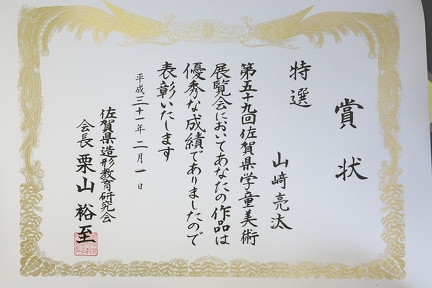 賞状
特選
山﨑亮汰
第五十九回佐賀県学童美術
展覧会においてあなたの作品は
優秀な成績でありましたので
表彰いたします
平成三十一年二月一日
佐賀県造形教育研究会
会長 栗山裕至